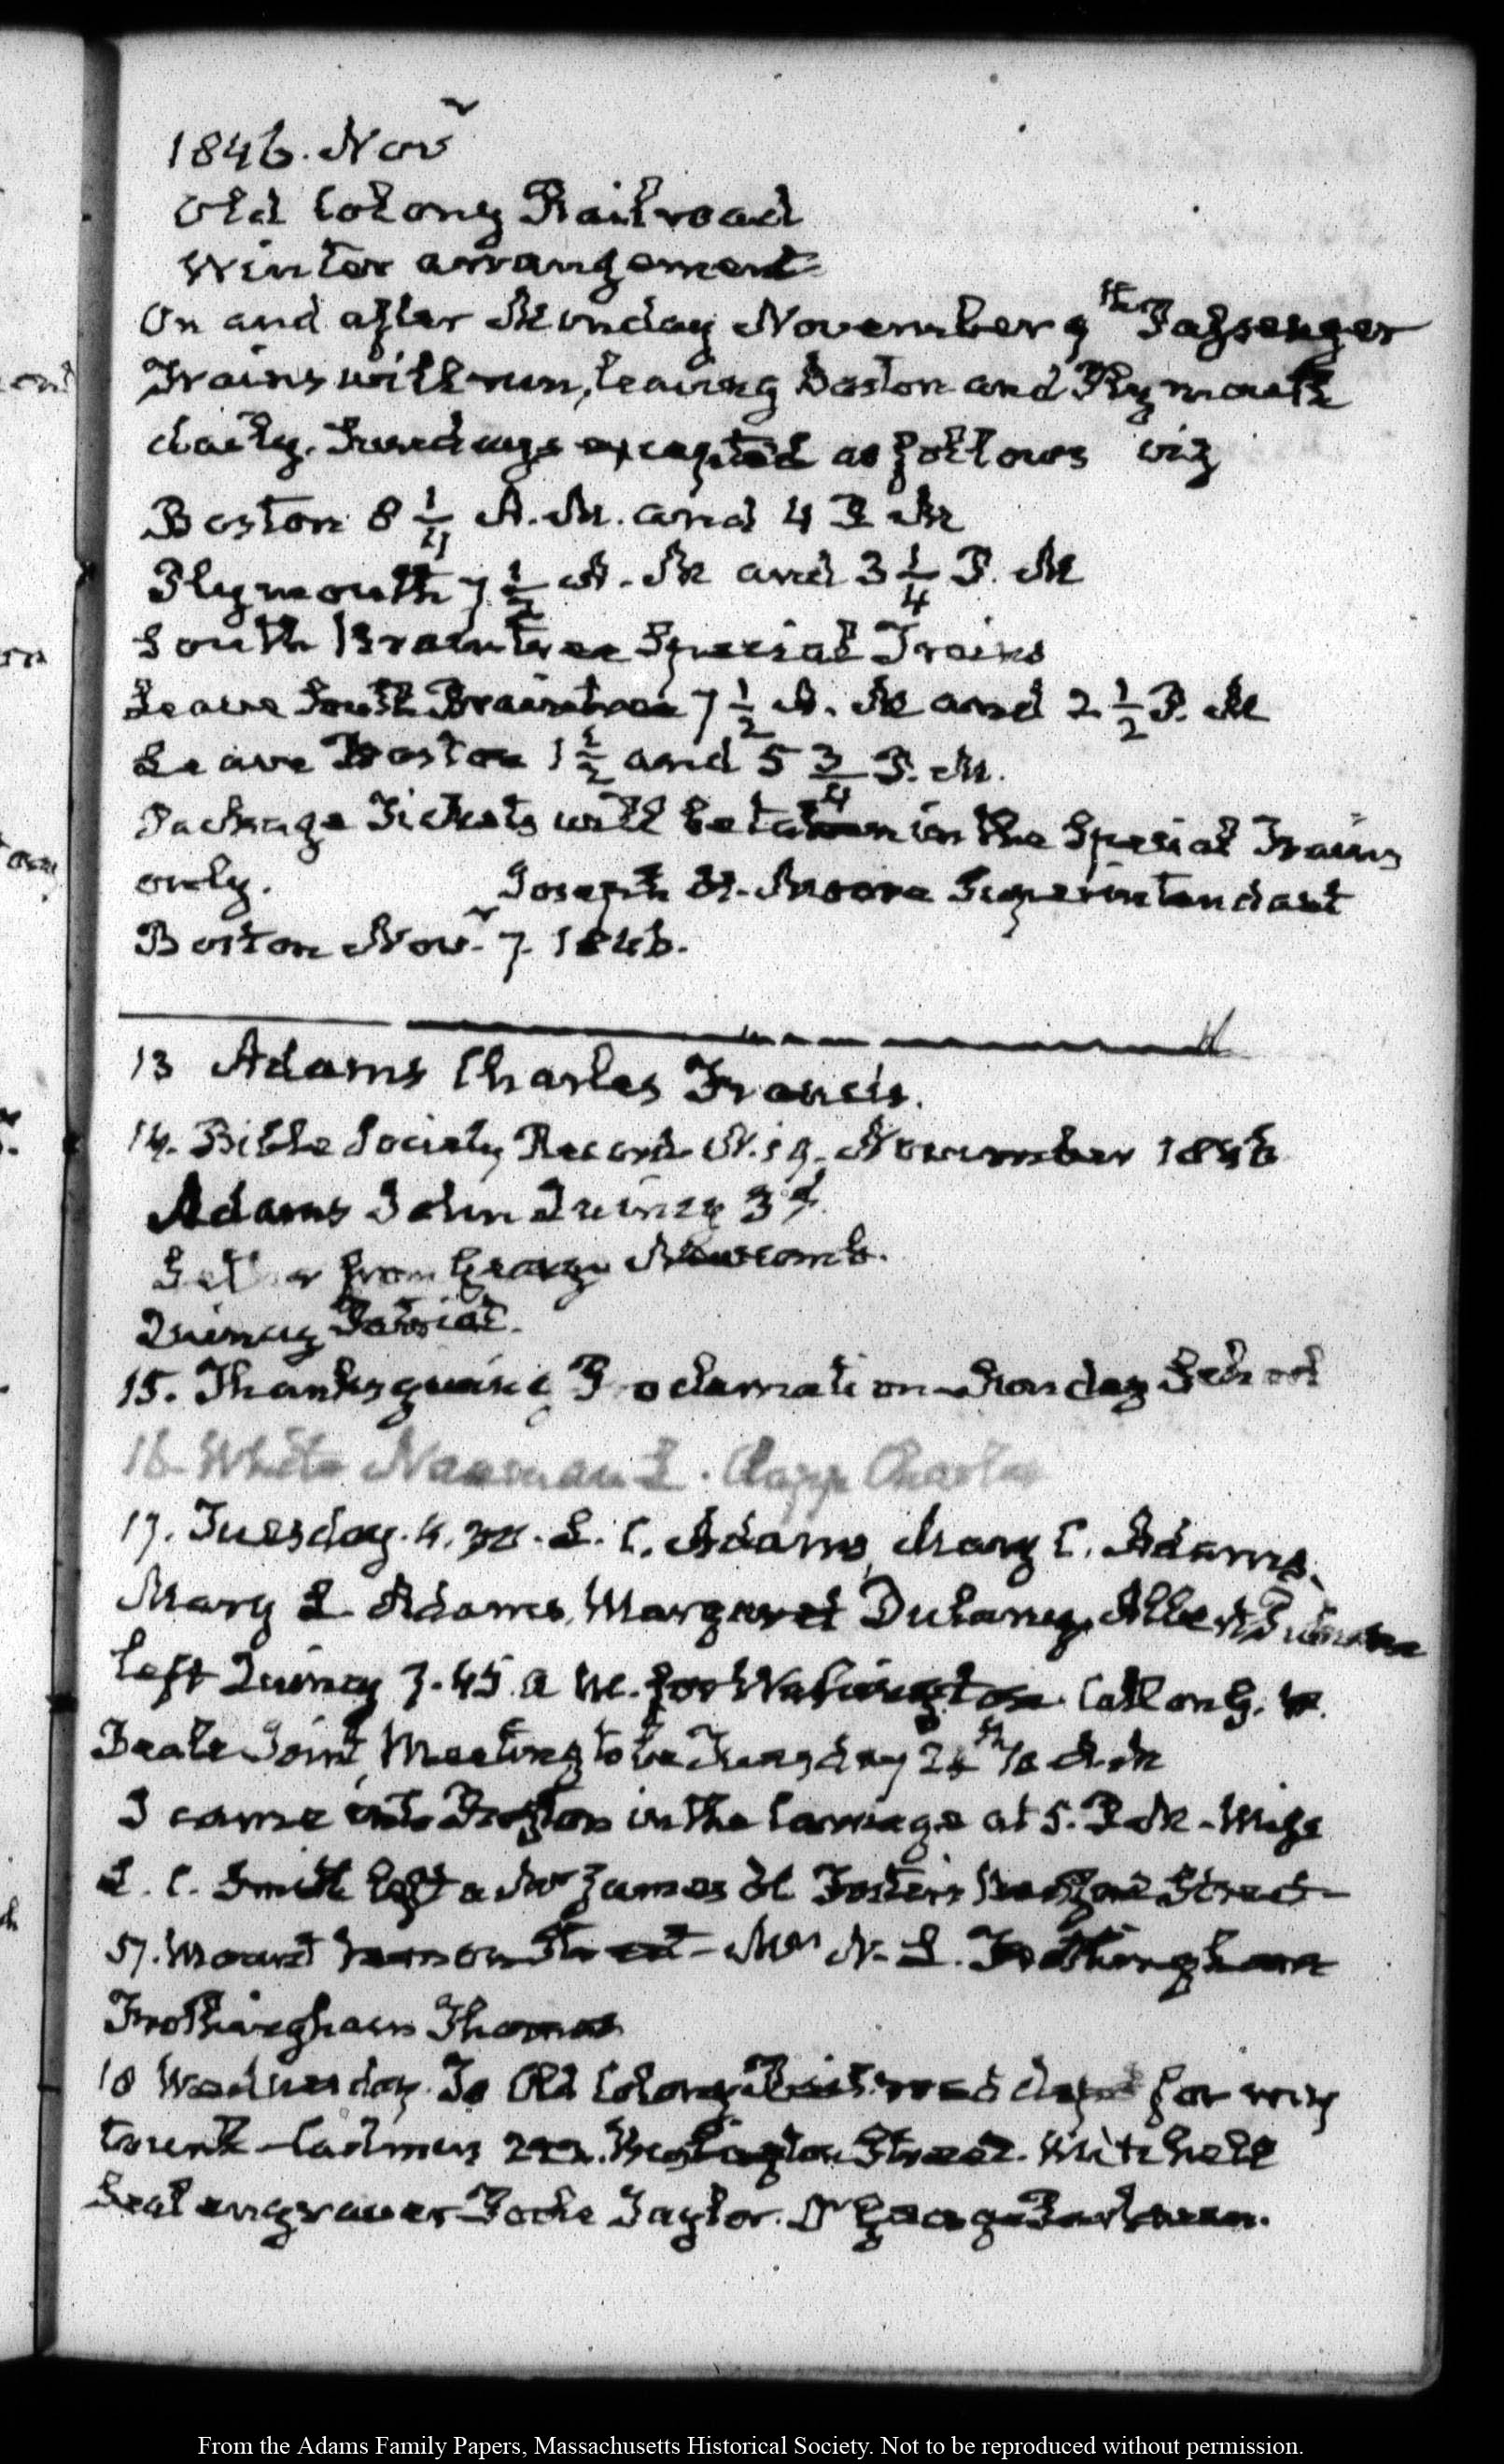 1846. Nov
Old Colony Railroad
Winter arrangement
On and after Monday November 9th Passenger
Trains will run, leaving Boston and Plymouth
daily, Sundays excepted as follows viz
Boston 8 1/4 A. M. and 4 P M
Plymouth 7 1/2 A. M and 3 1/4 P. M
South Braintree Special Trains
Leave South Braintree 7 1/2 A. M and 2 1/2 P. M
Leave Boston 1 1/2 and 5 3/4 P. M.
Package Tickets will be taken in the Special Trains
only. Joseph H. Moore Superintendant
Boston Nov. 7. 1846.
13 Adams Charles Francis.
14. Bible Society Record N. 19. November 1846
Adams John Quincy 3d.
Letter from George Newcomb.
Quincy Patriot.
15. Thanksgiving Proclamation Sunday School
16 White Naaman L. Clapp Charles
17. Tuesday. 4. L. C. Adams, Mary C. Adams.
Mary L. Adams, Margaret Dulaney,
left Quincy 7.45 a m. for Washington. Call on G. W.
Beale Joint, Meeting to be Tuesday 24th 10 A. M
I came into Boston in the Carriage at 5. P M. Miss
L. C. Smith left a Mr James H Foster's Street
57. Mount Vernon Street Mr N. L. Frothingham
Frothingham Thomas
18 Wednesday. To Old Colony Railroad depot for my
trunk 222. Washington Street. Mitchell
Seal engraver Taylor. Dr George Parkman.